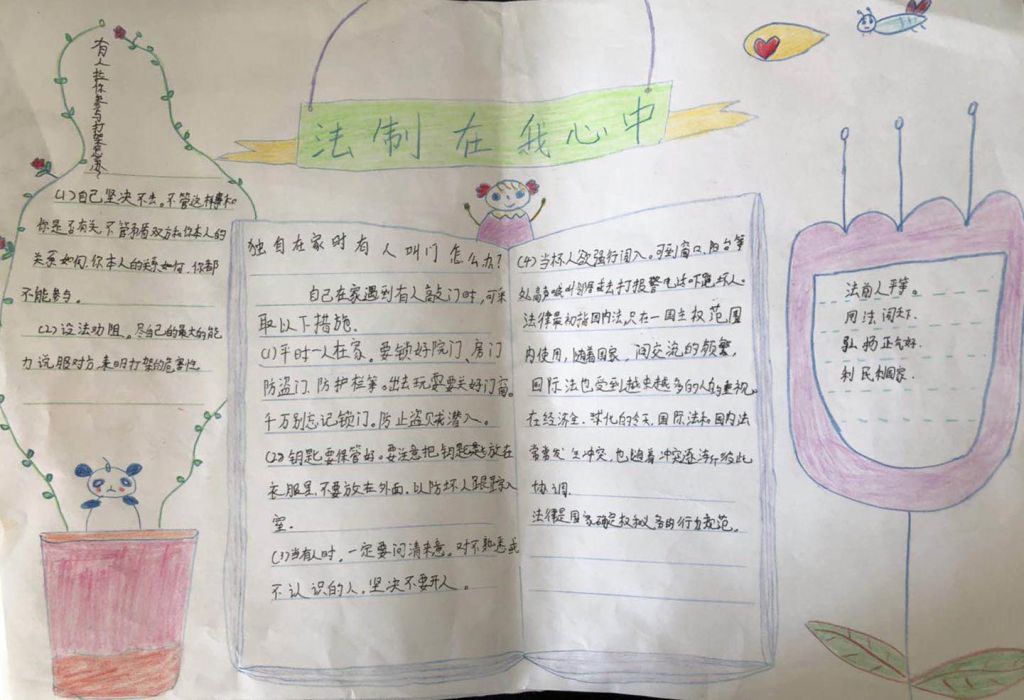 法制在我心中
有人拉你参与打架怎么办?
(1)自己坚决不去。不管这样事和
你是否有关,不管和看双方和你本人的
关系如何,你本人的关系如何,你都
不能参与。
(2)设法劝阻。尽自己的最大的能
力说服对方,表明打架的危害性
独自在家时有人叫门怎么办?
自己在家遇到有人敲门时,可采
取以下措施.
(1)平时一人在家。要锁好院门、房门
防盗门、防护栏等。出去玩耍要关好门窗。
千万别忘记锁门。防止盗贼潜入。
(2)钥匙要保管好。要注意把钥匙放在
衣服里,不要放在外面,以防坏人跟踪入
室.
(3)当有人时,一定要问清来意。对不熟悉或
不认识的人,坚决不要开人。
(4)当坏人欲强行闯入。可到窗口、阳台等
处高声喊叫邻居或去打报警电话吓跑坏人。
法律最初指国内法,只在一国主权范围
内使用,随着国家,间交流的频繁,
国际法也受到越来越多的人的重视。
在经济全,球化的今天,国际法和国内法
常常发生冲突,也随着冲突逐渐给此
协调.
法律是国家确定权和义务的行为规范。
法前人平等。
用法闯天下.
弘扬正气好.
利民利国家.